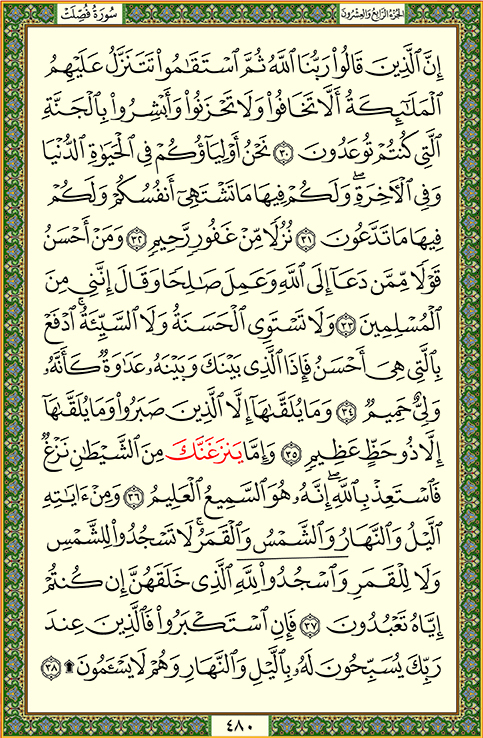 سُورَةُ فُصِّلَتْ الجُزْءُ الرَّابِعُ وَالعِشْرُونَ
إِنَّ ٱلَّذِينَ قَالُوا۟ رَبُّنَا ٱللَّهُ ثُمَّ ٱسْتَقَٰمُوا۟ تَتَنَزَّلُ عَلَيْهِمُ
ٱلْمَلَٰٓئِكَةُ أَلَّا تَخَافُوا۟ وَلَا تَحْزَنُوا۟ وَأَبْشِرُوا۟ بِٱلْجَنَّةِ
ٱلَّتِى كُنتُمْ تُوعَدُونَ ٣٠ نَحْنُ أَوْلِيَآؤُكُمْ فِى ٱلْحَيَوٰةِ ٱلدُّنْيَا
وَفِى ٱلْءَاخِرَةِ ۖ وَلَكُمْ فِيهَا مَا تَشْتَهِىٓ أَنفُسُكُمْ وَلَكُمْ
فِيهَا مَا تَدَّعُونَ ٣١ نُزُلًا مِّنْ غَفُورٍ رَّحِيمٍ ٣٢ وَمَنْ أَحْسَنُ
قَوْلًا مِّمَّن دَعَآ إِلَى ٱللَّهِ وَعَمِلَ صَٰلِحًا وَقَالَ إِنَّنِى مِنَ
ٱلْمُسْلِمِينَ ٣٣ وَلَا تَسْتَوِى ٱلْحَسَنَةُ وَلَا ٱلسَّيِّئَةُ ۚ ٱدْفَعْ
بِٱلَّتِى هِىَ أَحْسَنُ فَإِذَا ٱلَّذِى بَيْنَكَ وَبَيْنَهُۥ عَدَٰوَةٌ كَأَنَّهُۥ
وَلِىٌّ حَمِيمٌ ٣٤ وَمَا يُلَقَّىٰهَآ إِلَّا ٱلَّذِينَ صَبَرُوا۟ وَمَا يُلَقَّىٰهَآ
إِلَّا ذُو حَظٍّ عَظِيمٍ ٣٥ وَإِمَّا يَنزَغَنَّكَ مِنَ ٱلشَّيْطَٰنِ نَزْغٌ
فَٱسْتَعِذْ بِٱللَّهِ ۖ إِنَّهُۥ هُوَ ٱلسَّمِيعُ ٱلْعَلِيمُ ٣٦ وَمِنْ ءَايَٰتِهِ
ٱلَّيْلُ وَٱلنَّهَارُ وَٱلشَّمْسُ وَٱلْقَمَرُ ۚ لَا تَسْجُدُوا۟ لِلشَّمْسِ
وَلَا لِلْقَمَرِ وَٱسْجُدُوا۟ لِلَّهِ ٱلَّذِى خَلَقَهُنَّ إِن كُنتُمْ
إِيَّاهُ تَعْبُدُونَ ٣٧ فَإِنِ ٱسْتَكْبَرُوا۟ فَٱلَّذِينَ عِندَ
رَبِّكَ يُسَبِّحُونَ لَهُۥ بِٱلَّيْلِ وَٱلنَّهَارِ وَهُمْ لَا يَسْـَٔمُونَ ۩ ٣٨
٤٨٠